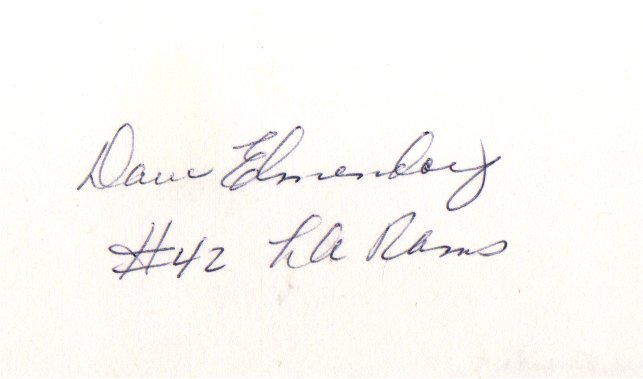 Dave Elmendorf
#42 LA Rams